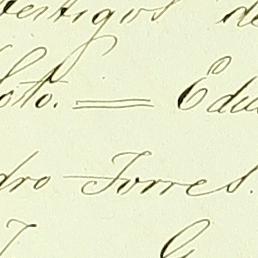 testigos de
Soto. = Edu
dro Torres.